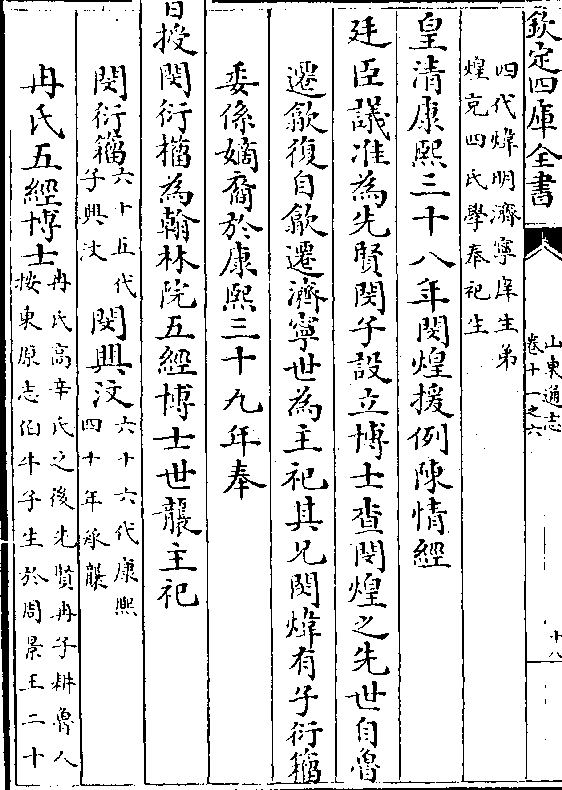 欽定四庫全書
山東通志
卷十一之六
十八
四代煒明濟寧庠生弟
煌充四氏學奉祀生
皇清康熙三十八年閔煌援例陳情經
廷臣議准為先賢閔子設立博士查閔煌之先世自魯
遷歙復自歙遷濟寧世為主祀其兄閔煒有子衍籀
委係嫡裔於康熙三十九年奉
旨授閔衍籀為翰林院五經博士世襲主祀
閔衍籀
六十五代
子興汶
閔興汶
六十六代康熙
四十年承襲
冉氏五經博士
冉氏高辛氏之後先賢冉子耕魯人
按東原志伯牛子生於周景王二十